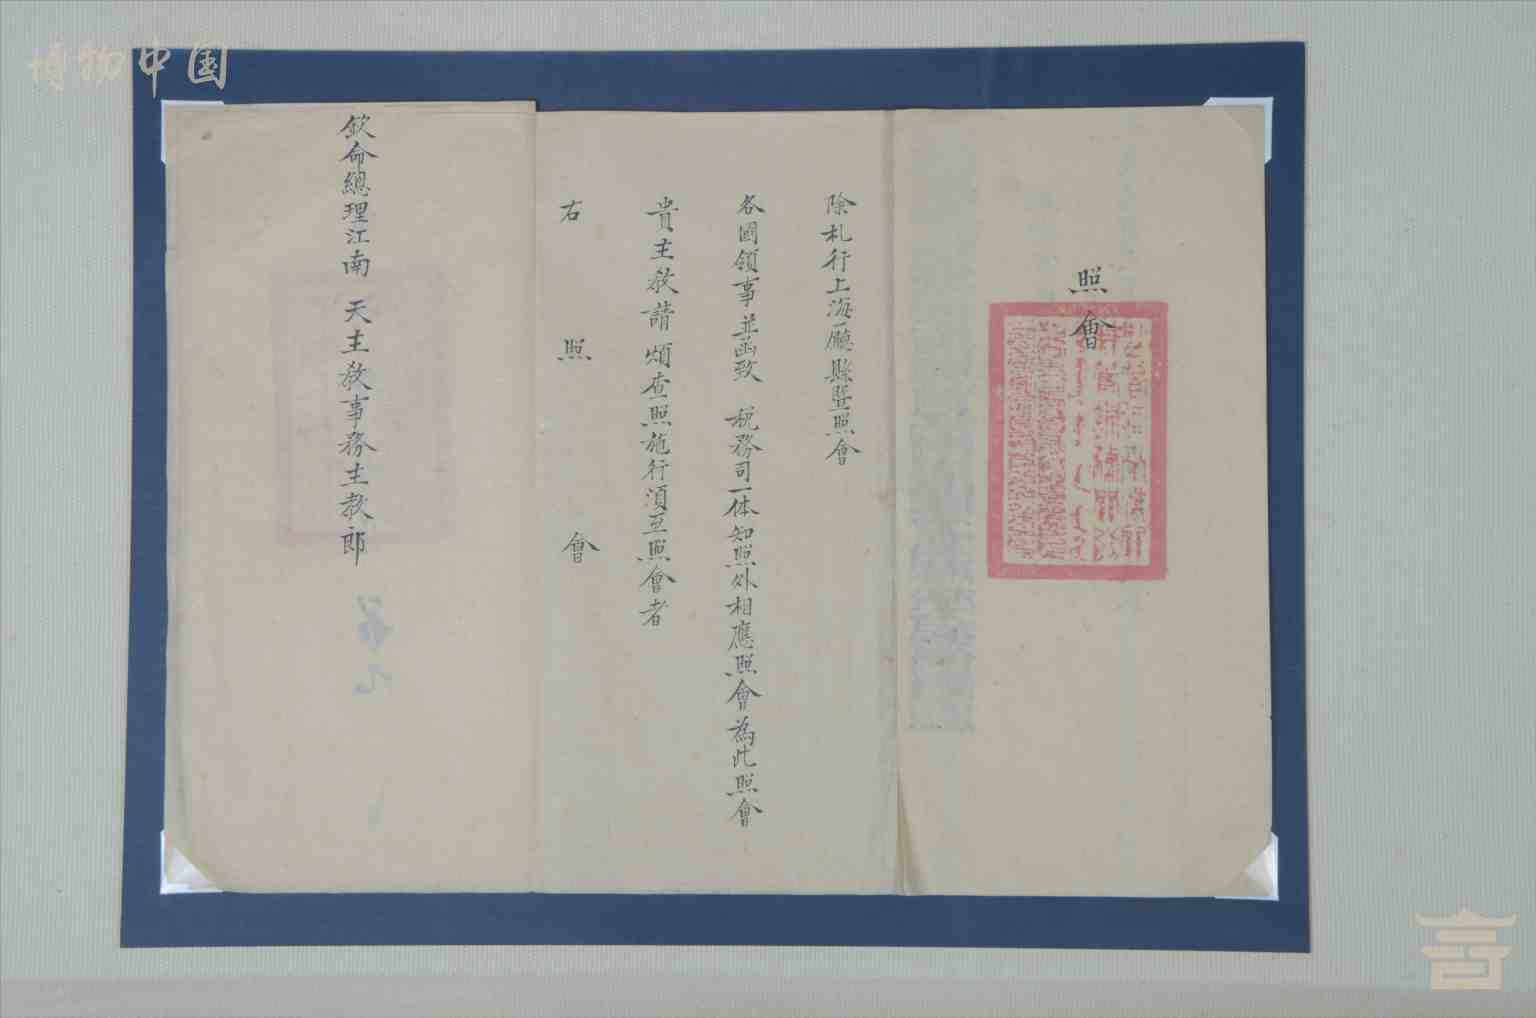 博物中国
照會
除札行上海廳縣暨照會
各國領事並函致 稅務司一体知照外相應照會為此照會
貴主教請煩查照施行須至照會者
右 照 會
欽命總理江南 天主教事務主教郎